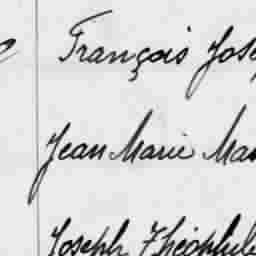 François Jose
Jean Marie Ma
Joseph Théophile